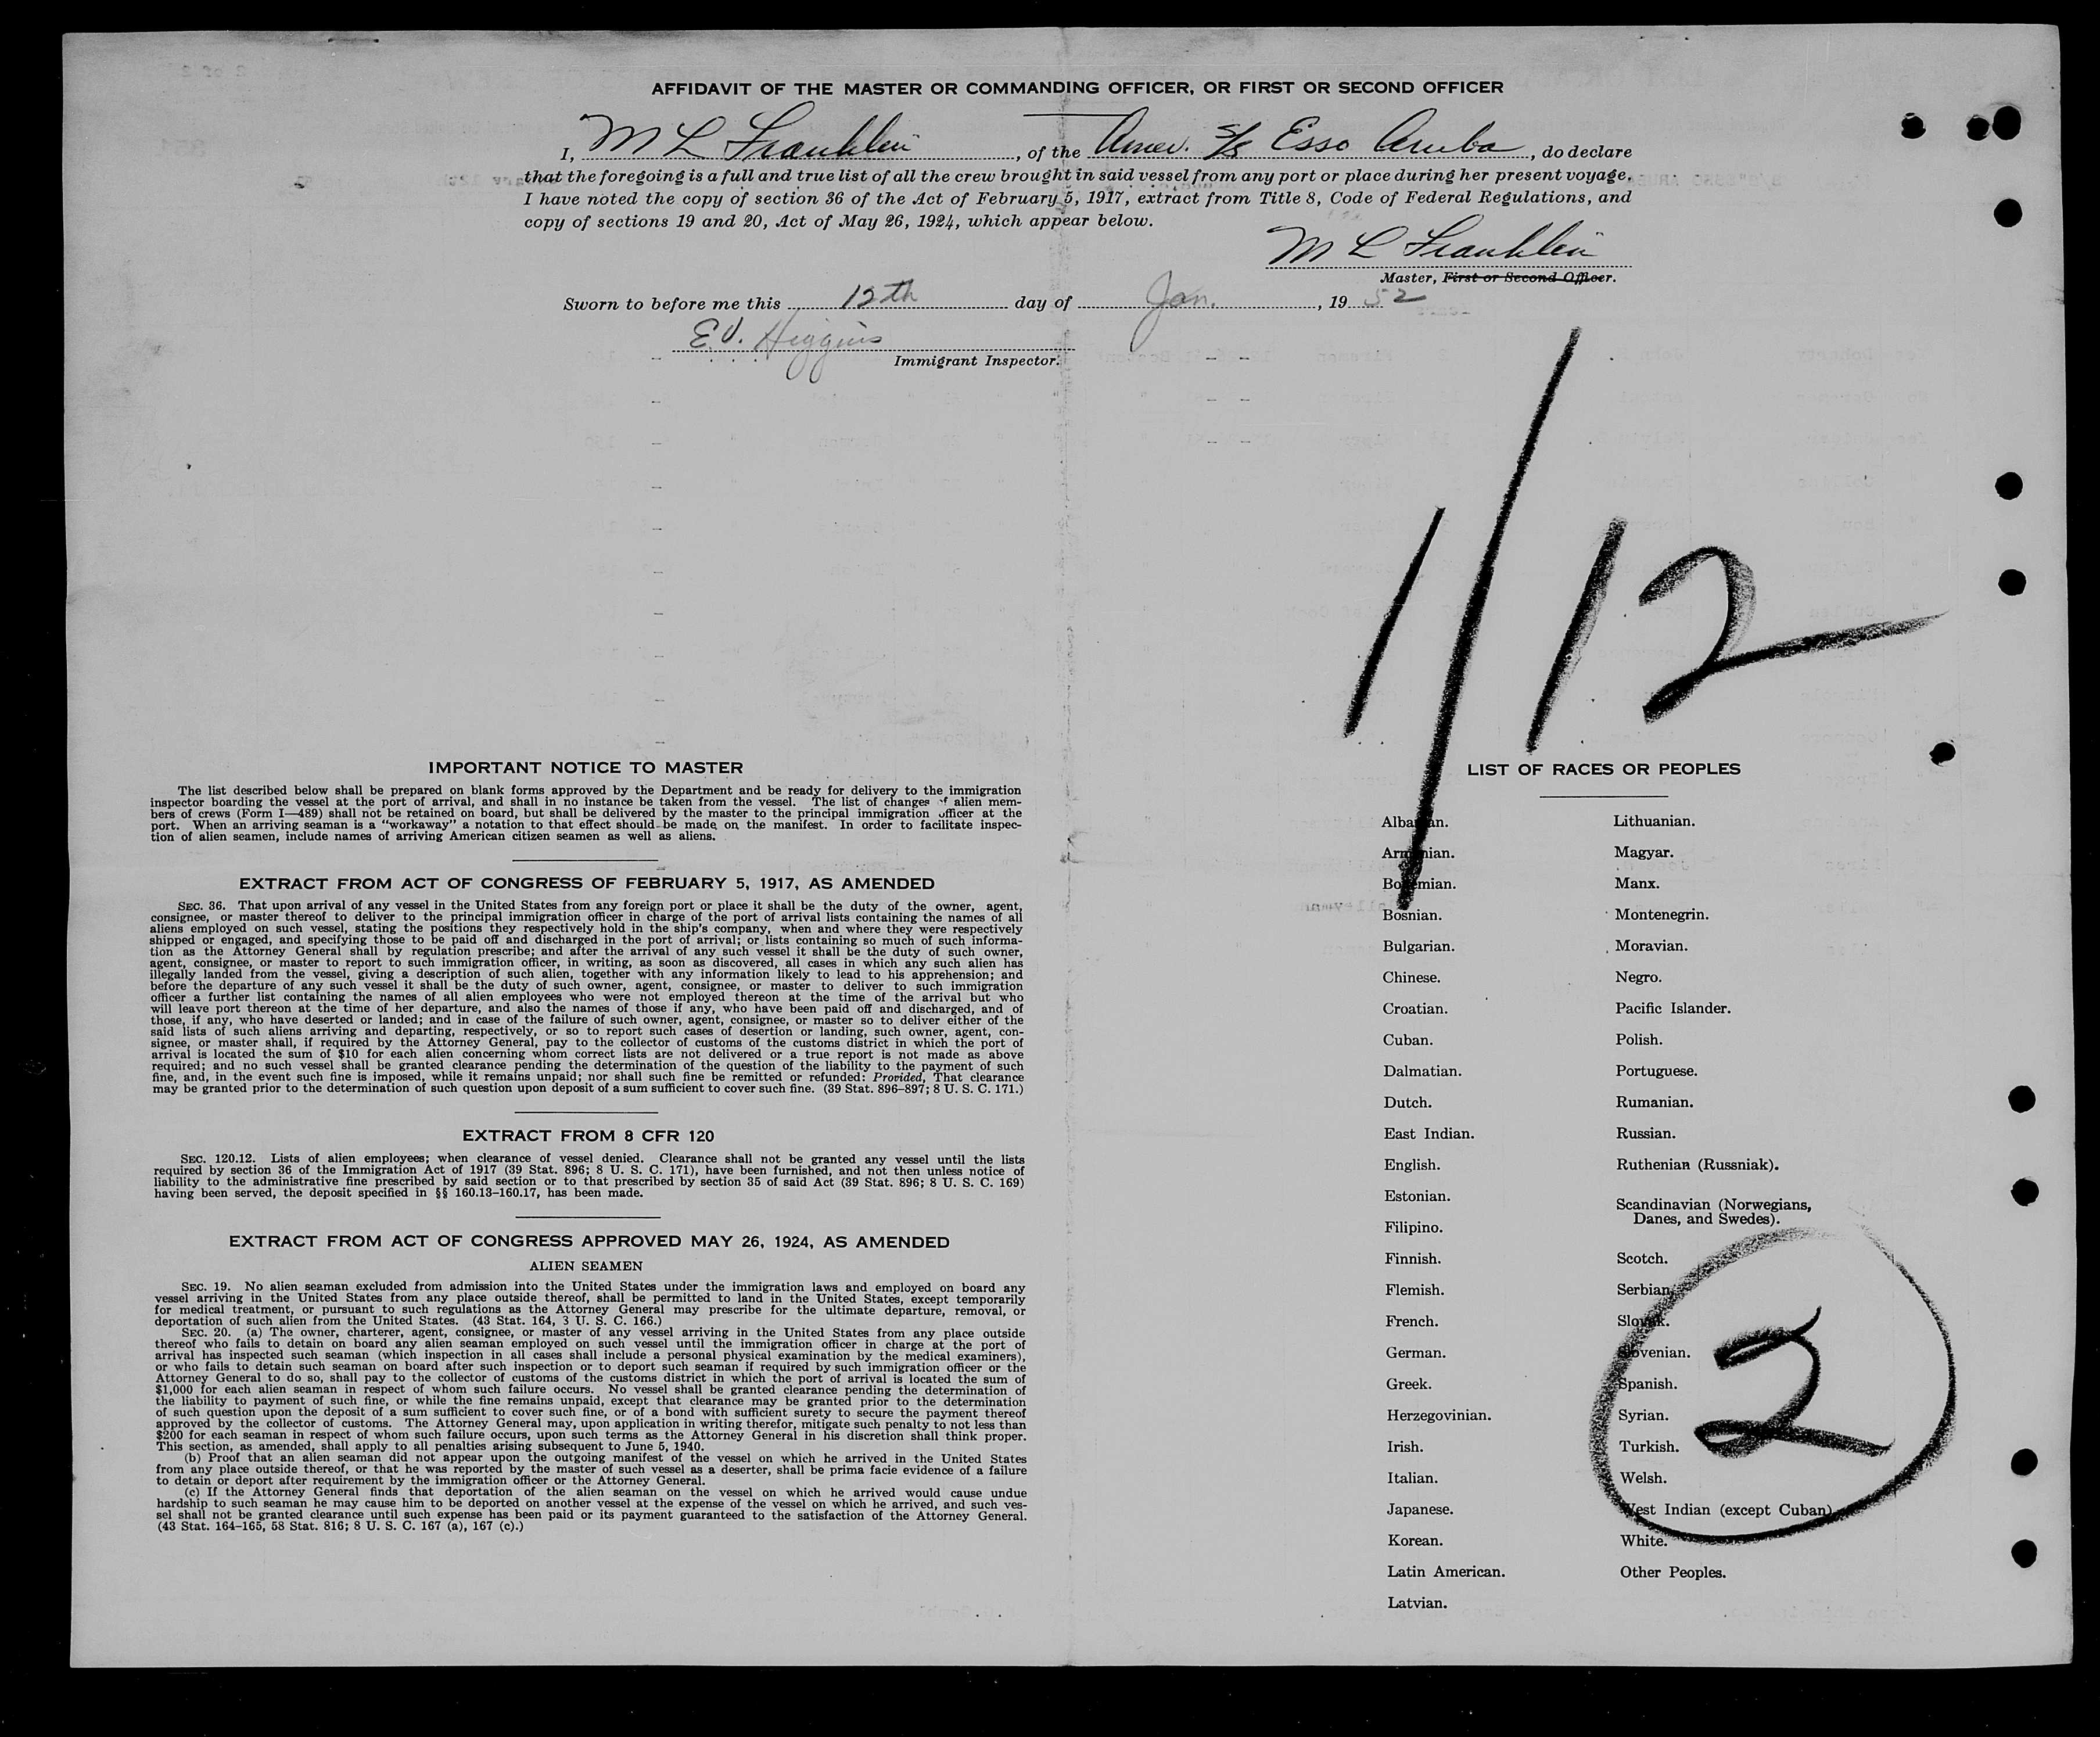 AFFIDAVIT OF THE MASTER OR COMMANDING OFFICER, OR FIRST OR SECOND OFFICER
I, M L Franklin, of the Amer. S/S Esso Aruba, do declare
that the foregoing is a full and true list of all the crew brought in said vessel from any port or place during her present voyage.
I have noted the copy of section 36 of the Act of February 5, 1917, extract from Title 8, Code of Federal Regulations, and
copy of sections 19 and 20, Act of May 26, 1924, which appear below.
M L Franklin
Master, First or Second Officer.
Sworn to before me this 12th day of Jan., 1952
E.J. Higgins
Immigrant Inspector.
1/12
IMPORTANT NOTICE TO MASTER
The list described below shall be prepared on blank forms approved by the Department and be ready for delivery to the immigration
inspector boarding the vessel at the port of arrival, and shall in no instance be taken from the vessel. The list of changes of alien mem-
bers of crews (Form I—489) shall not be retained on board, but shall be delivered by the master to the principal immigration officer at the
port. When an arriving seaman is a "workaway" a notation to that effect should be made on the manifest. In order to facilitate inspec-
tion of alien seamen, include names of arriving American citizen seamen as well as aliens.
EXTRACT FROM ACT OF CONGRESS OF FEBRUARY 5, 1917, AS AMENDED
SEC. 36. That upon arrival of any vessel in the United States from any foreign port or place it shall be the duty of the owner, agent,
consignee, or master thereof to deliver to the principal immigration officer in charge of the port of arrival lists containing the names of all
aliens employed on such vessel, stating the positions they respectively hold in the ship's company, when and where they were respectively
shipped or engaged, and specifying those to be paid off and discharged in the port of arrival; or lists containing so much of such informa-
tion as the Attorney General shall by regulation prescribe; and after the arrival of any such vessel it shall be the duty of such owner,
agent, consignee, or master to report to such immigration officer, in writing, as soon as discovered, all cases in which any such alien has
illegally landed from the vessel, giving a description of such alien, together with any information likely to lead to his apprehension; and
before the departure of any such vessel it shall be the duty of such owner, agent, consignee, or master to deliver to such immigration
officer a further list containing the names of all alien employees who were not employed thereon at the time of the arrival but who
will leave port thereon at the time of her departure, and also the names of those if any, who have been paid off and discharged, and of
those, if any, who have deserted or landed; and in case of the failure of such owner, agent, consignee, or master so to deliver either of the
said lists of such aliens arriving and departing, respectively, or so to report such cases of desertion or landing, such owner, agent, con-
signee, or master shall, if required by the Attorney General, pay to the collector of customs of the customs district in which the port of
arrival is located the sum of $10 for each alien concerning whom correct lists are not delivered or a true report is not made as above
required; and no such vessel shall be granted clearance pending the determination of the question of the liability to the payment of such
fine, and, in the event such fine is imposed, while it remains unpaid; nor shall such fine be remitted or refunded: Provided, That clearance
may be granted prior to the determination of such question upon deposit of a sum sufficient to cover such fine. (39 Stat. 896–897; 8 U. S. C. 171.)
EXTRACT FROM 8 CFR 120
SEC. 120.12. Lists of alien employees; when clearance of vessel denied. Clearance shall not be granted any vessel until the lists
required by section 36 of the Immigration Act of 1917 (39 Stat. 896; 8 U. S. C. 171), have been furnished, and not then unless notice of
liability to the administrative fine prescribed by said section or to that prescribed by section 35 of said Act (39 Stat. 896; 8 U. S. C. 169)
having been served, the deposit specified in §§ 160.13–160.17, has been made.
EXTRACT FROM ACT OF CONGRESS APPROVED MAY 26, 1924, AS AMENDED
ALIEN SEAMEN
SEC. 19. No alien seaman excluded from admission into the United States under the immigration laws and employed on board any
vessel arriving in the United States from any place outside thereof, shall be permitted to land in the United States, except temporarily
for medical treatment, or pursuant to such regulations as the Attorney General may prescribe for the ultimate departure, removal, or
deportation of such alien from the United States. (43 Stat. 164, 3 U. S. C. 166.)
SEC. 20. (a) The owner, charterer, agent, consignee, or master of any vessel arriving in the United States from any place outside
thereof who fails to detain on board any alien seaman employed on such vessel until the immigration officer in charge at the port of
arrival has inspected such seaman (which inspection in all cases shall include a personal physical examination by the medical examiners),
or who fails to detain such seaman on board after such inspection or to deport such seaman if required by such immigration officer or the
Attorney General to do so, shall pay to the collector of customs of the customs district in which the port of arrival is located the sum of
$1,000 for each alien seaman in respect of whom such failure occurs. No vessel shall be granted clearance pending the determination of
the liability to payment of such fine, or while the fine remains unpaid, except that clearance may be granted prior to the determination
of such question upon the deposit of a sum sufficient to cover such fine, or of a bond with sufficient surety to secure the payment thereof
approved by the collector of customs. The Attorney General may, upon application in writing therefor, mitigate such penalty to not less than
$200 for each seaman in respect of whom such failure occurs, upon such terms as the Attorney General in his discretion shall think proper.
This section, as amended, shall apply to all penalties arising subsequent to June 5, 1940.
(b) Proof that an alien seaman did not appear upon the outgoing manifest of the vessel on which he arrived in the United States
from any place outside thereof, or that he was reported by the master of such vessel as a deserter, shall be prima facie evidence of a failure
to detain or deport after requirement by the immigration officer or the Attorney General.
(c) If the Attorney General finds that deportation of the alien seaman on the vessel on which he arrived would cause undue
hardship to such seaman he may cause him to be deported on another vessel at the expense of the vessel on which he arrived, and such ves-
sel shall not be granted clearance until such expense has been paid or its payment guaranteed to the satisfaction of the Attorney General.
(43 Stat. 164–165, 58 Stat. 816; 8 U. S. C. 167 (a), 167 (c).)
LIST OF RACES OR PEOPLES
Albanian.
Armenian.
Bohemian.
Bosnian.
Bulgarian.
Chinese.
Croatian.
Cuban.
Dalmatian.
Dutch.
East Indian.
English.
Estonian.
Filipino.
Finnish.
Flemish.
French.
German.
Greek.
Herzegovinian.
Irish.
Italian.
Japanese.
Korean.
Latin American.
Latvian.
Lithuanian.
Magyar.
Manx.
Montenegrin.
Moravian.
Negro.
Pacific Islander.
Polish.
Portuguese.
Rumanian.
Russian.
Ruthenian (Russniak).
Scandinavian (Norwegians,
Danes, and Swedes).
Scotch.
Serbian.
Slovak.
Slovenian.
Spanish.
Syrian.
Turkish.
Welsh.
West Indian (except Cuban).
White.
Other Peoples.
2